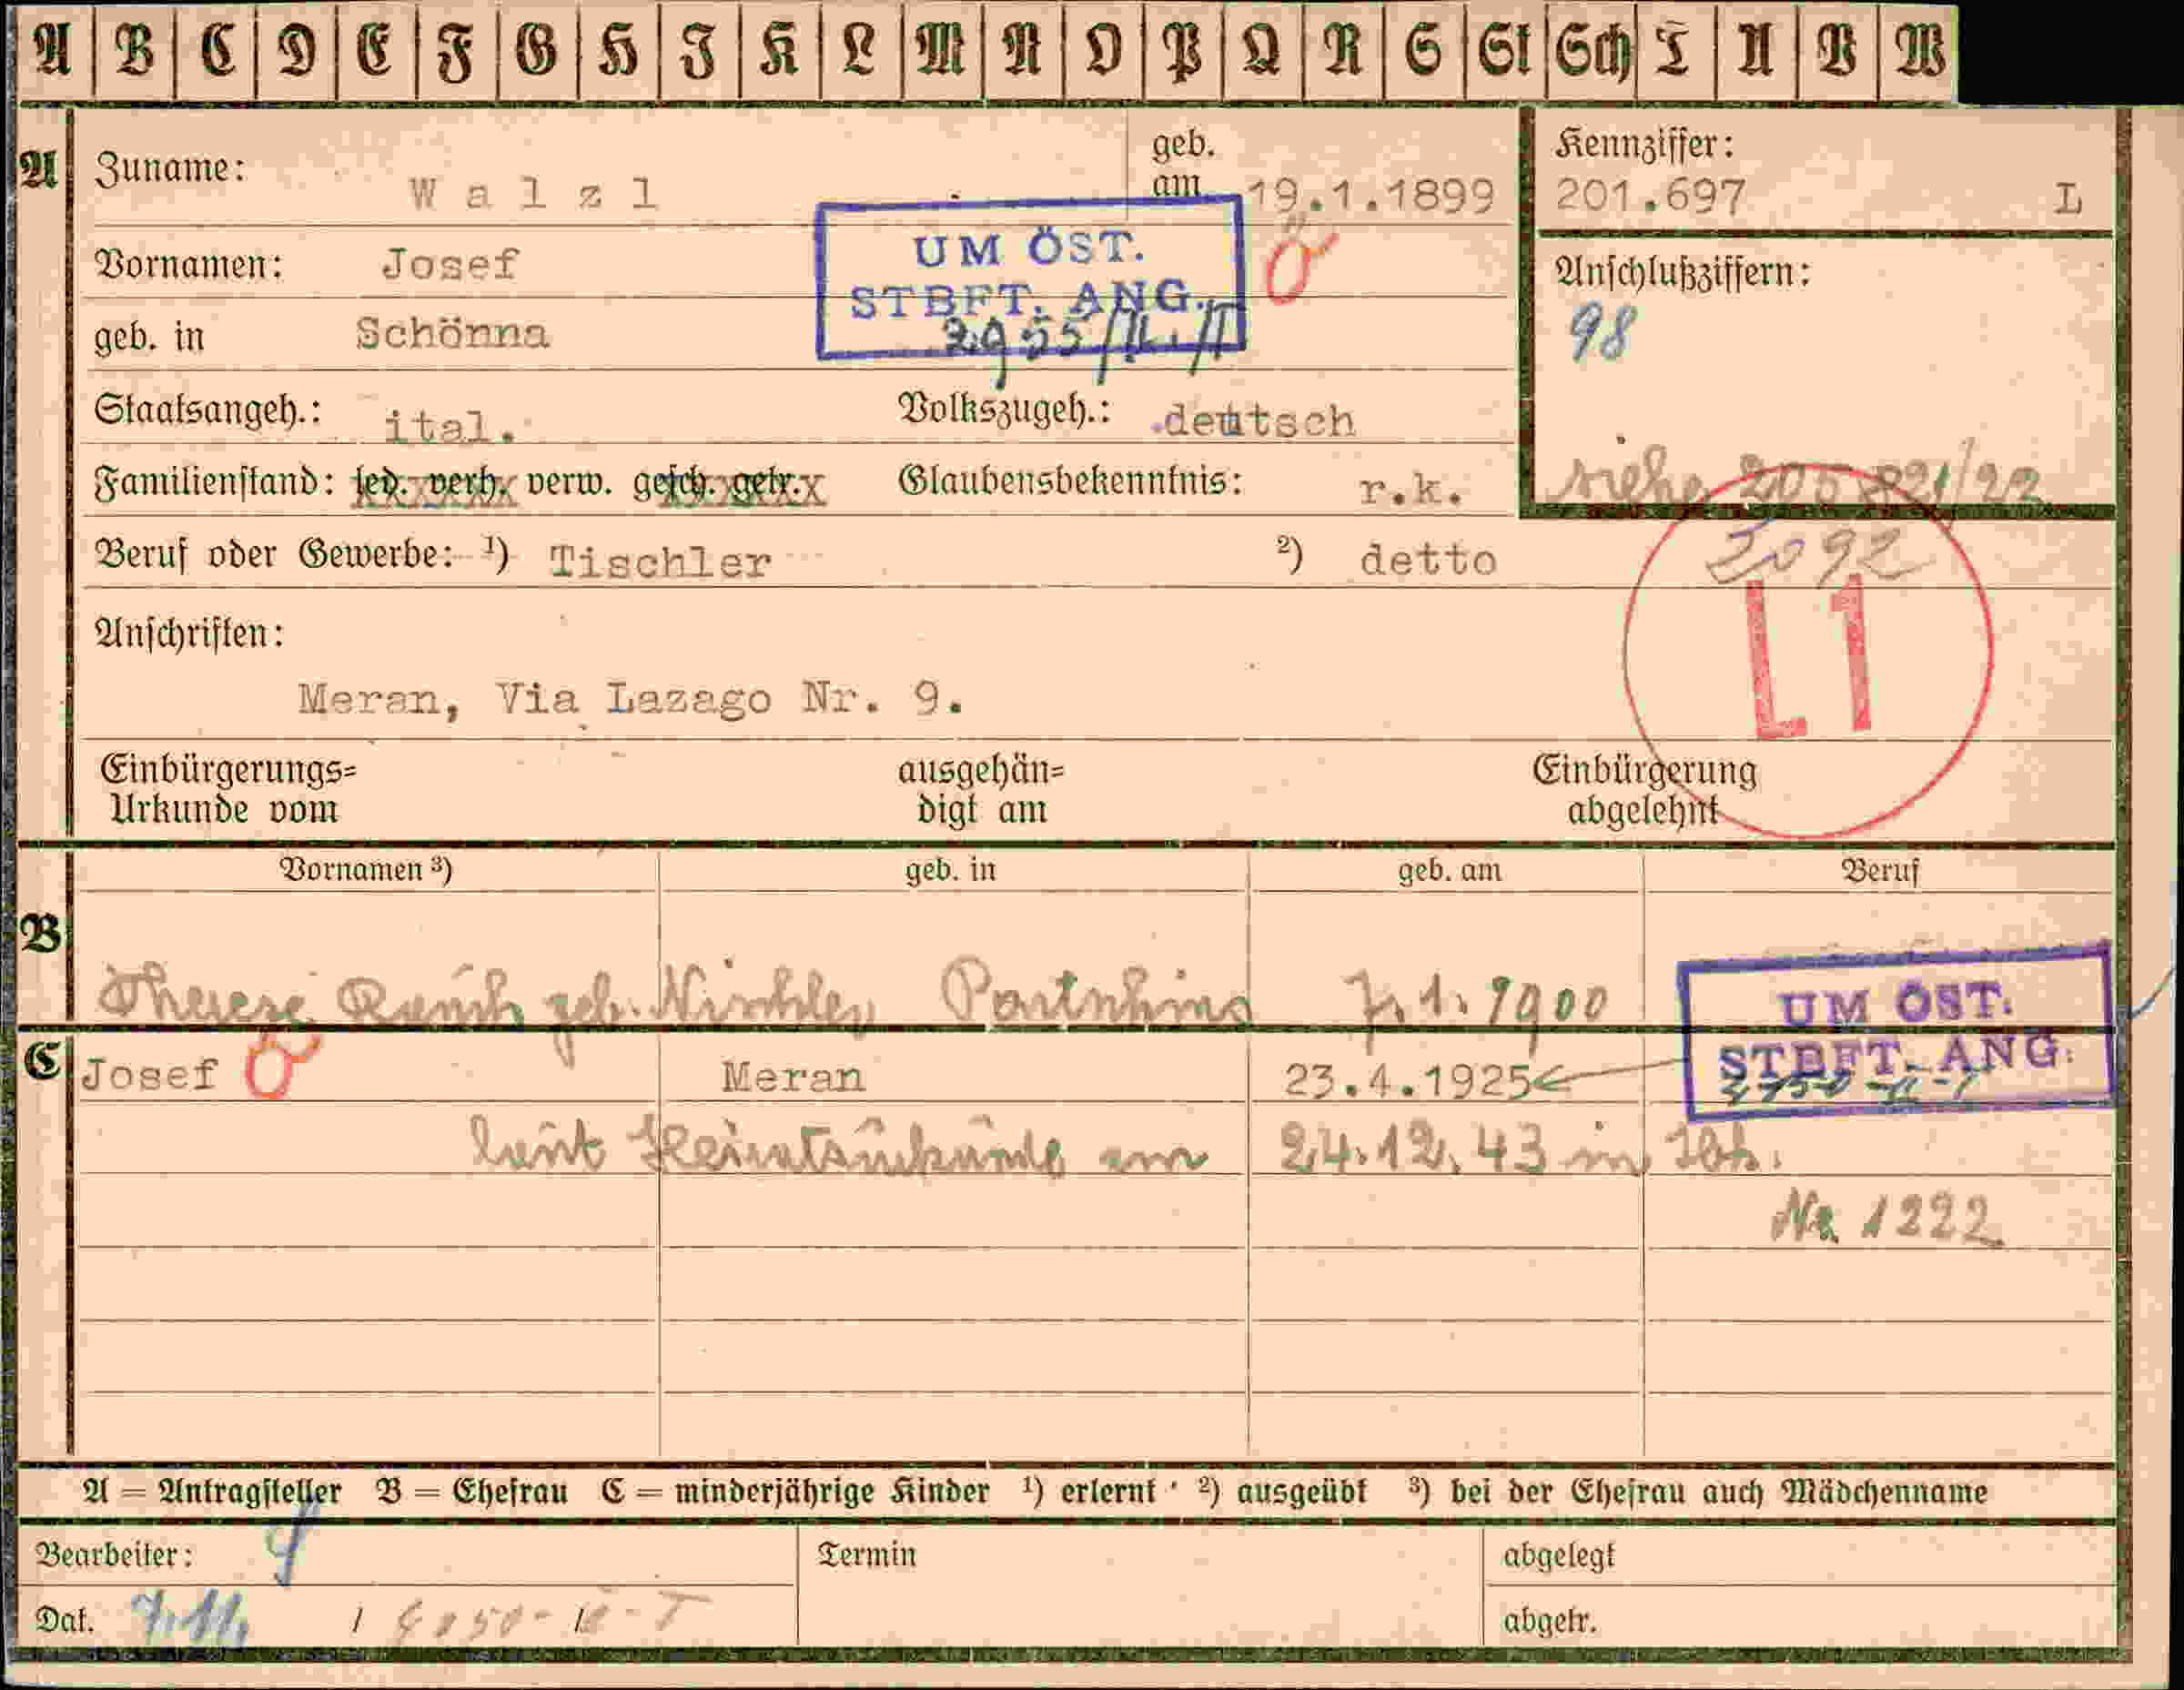 A B C D E F G H I K L M N O P Q R S St Sch T U V W
A Zuname: Walzl geb. am 19.1.1899 Kennziffer: 201.697 L
UM ÖST. STBFT. ANG.
Vornamen: Josef
Anschlußziffern: 98
geb. in Schönna
Staatsangeh.: ital. Volkszugeh.: deutsch
siehe 205 821/22
Familienstand: led. verh. verw. gesch. getr. Glaubensbekenntnis: r.k.
Beruf oder Gewerbe: ¹) Tischler ²) detto
2092
L1
Anschriften:
Meran, Via Lazago Nr. 9.
Einbürgerungs= Urkunde vom ausgehän= digt am Einbürgerung abgelehnt
Vornamen ³) geb. in geb. am Beruf
B Therese geb. Partschins 7.1.1900
UM ÖST. STBFT. ANG.
C Josef Meran 23.4.1925
laut Heiratsurkunde am 24.12.43 in
Nr 1222
A = Antragsteller B = Ehefrau C = minderjährige Kinder ¹) erlernt ²) ausgeübt ³) bei der Ehefrau auch Mädchenname
Bearbeiter: Termin abgelegt
Dat. 7.11. abgetr.